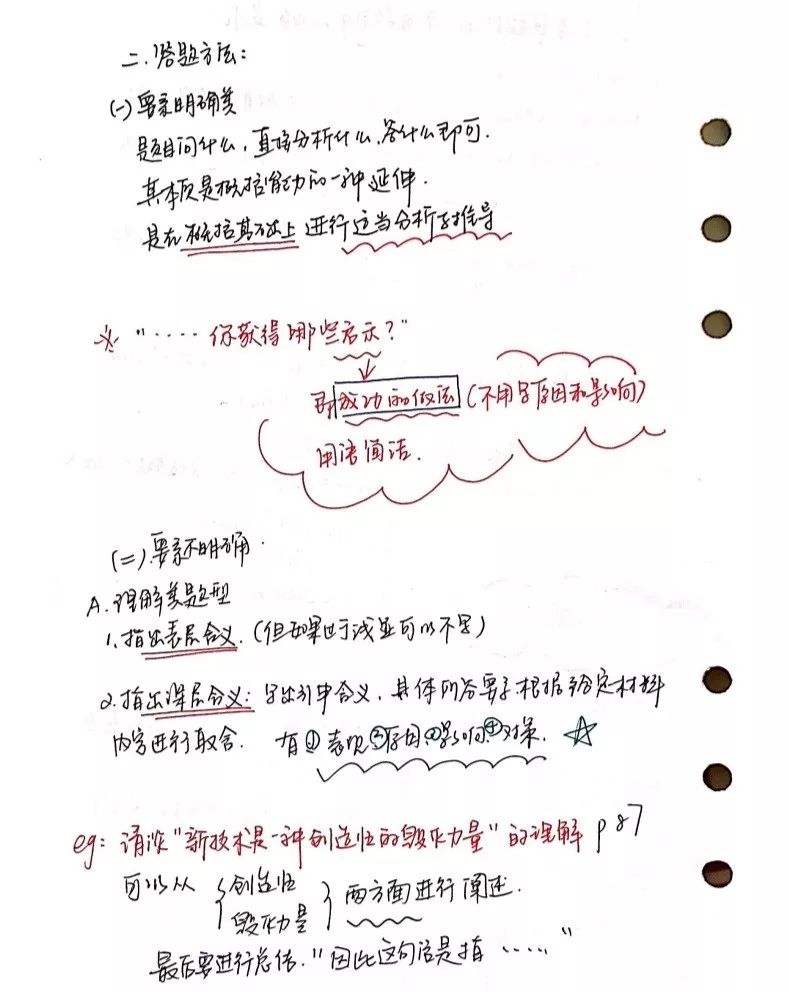 二.答题方法：
(一)要素明确类
题目问什么，直接分析什么，答什么即可.
其本质是概括能力的一种延伸.
是在概括基础上进行适当分析或推导
※ "····你获得哪些启示？"
成功的做法（不用写原因和影响）
用语简洁.
(二).要素不明确.
A.理解类题型
1.指出表层含义.（但如果过于浅显可以不写）
2.指出深层含义：写出引申含义，具体所答要素根据给定材料
内容进行取舍. 有①表现②原因③影响④对策. ☆
eg：请谈"新技术是一种创造性的毁灭力量"的理解 P87
可以从{创造性
毁灭力量}两方面进行阐述.
最后要进行总结."因此这句话是指·····"